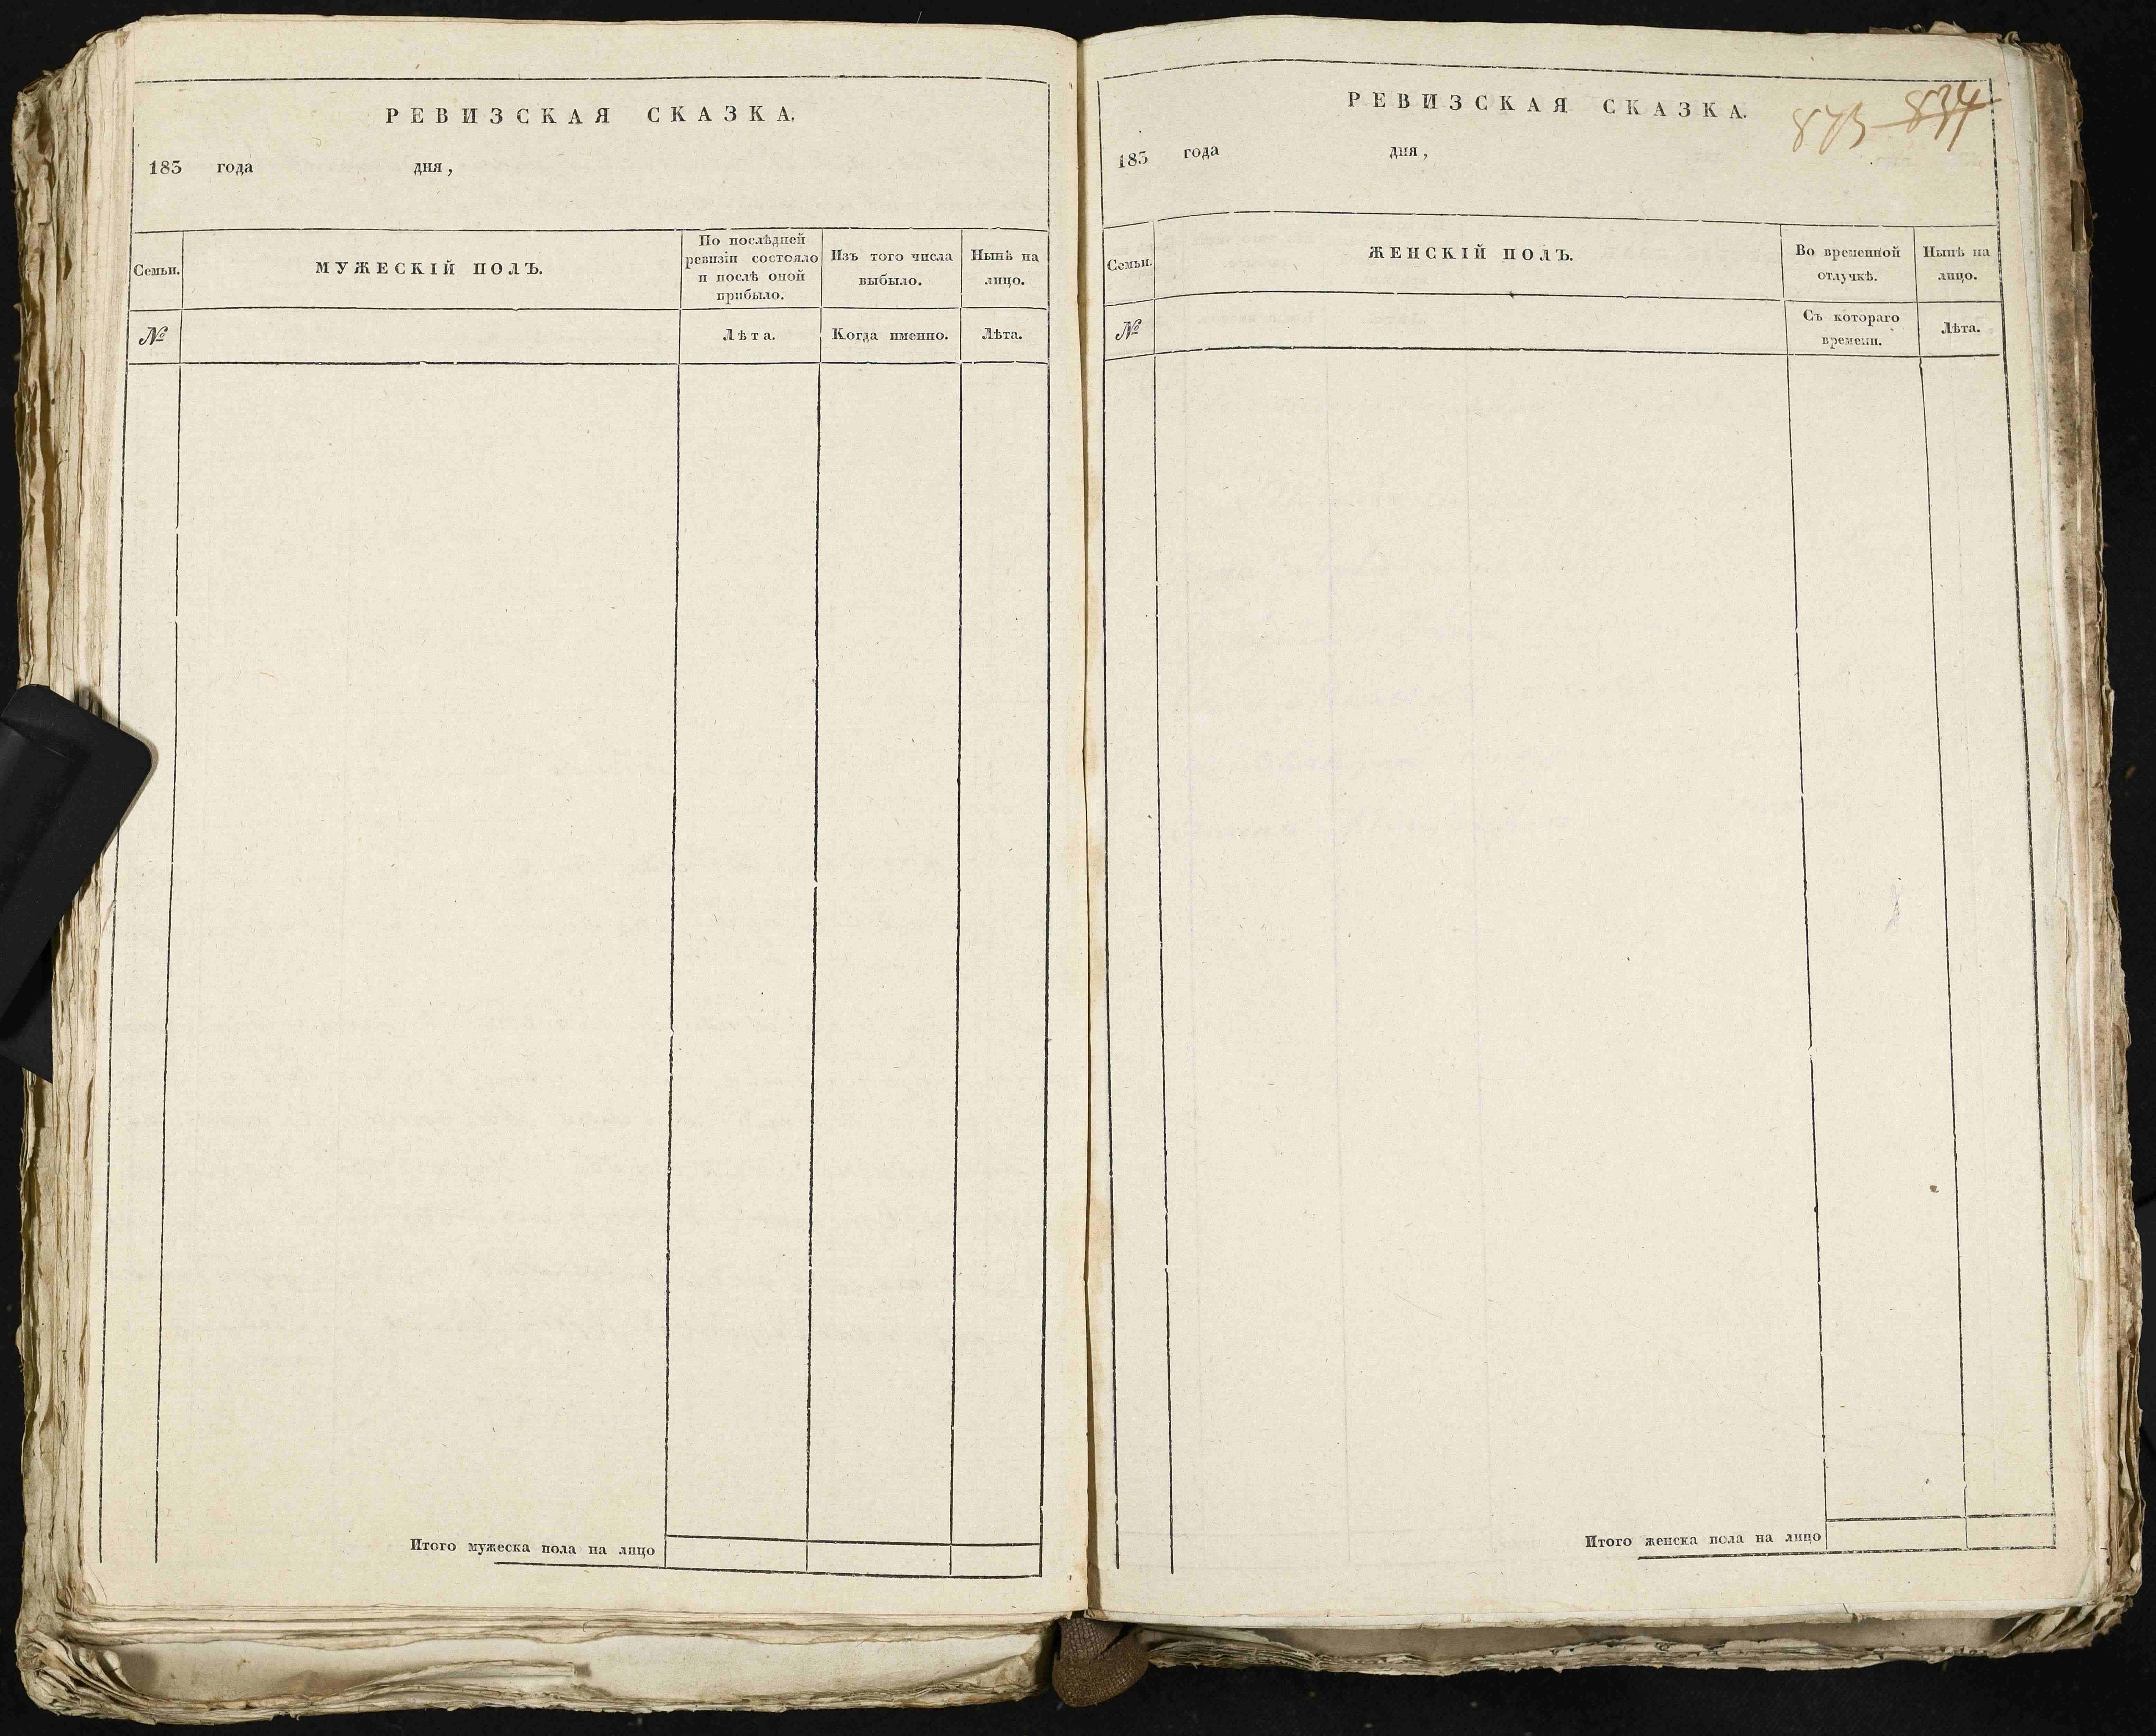 РЕВИЗСКАЯ СКАЗКА.
183 года дня,
Семьи.
МУЖЕСКІЙ ПОЛЪ.
По послѣдней
ревизіи состояло
и послѣ оной
прибыло.
Изъ того числа
выбыло.
Нынѣ на
лицо.
№
Лѣта.
Когда именно.
Лѣта.
Итого мужеска пола на лицо
РЕВИЗСКАЯ СКАЗКА.
873 834
183 года дня,
Семьи.
ЖЕНСКІЙ ПОЛЪ.
Во временной
отлучкѣ.
Нынѣ на
лицо.
№
Съ котораго
времени.
Лѣта.
Итого женска пола на лицо